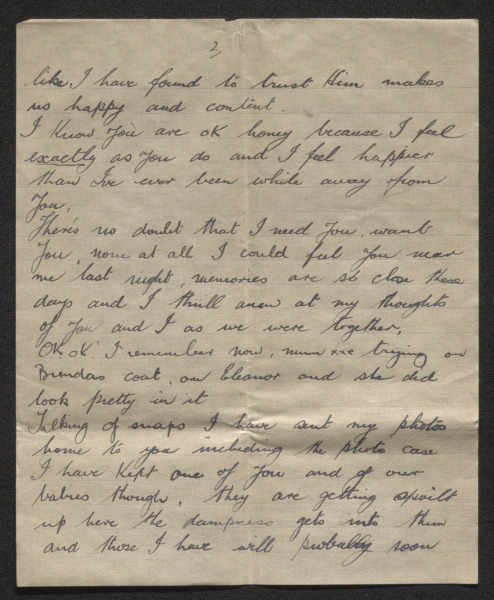 2,
like I have found to trust Him makes
us happy and content.
I Know You are OK honey because I feel
exactly as You do and I feel happier
than I've ever been while away from
You.
There's no doubt that I need You, want
You, none at all I could feel You near
me last night, memories are so close these
days and I thrill anew at my thoughts
of You and I as we were together.
OK OK I remember now, mum xxx trying on
Brenda's coat, on Eleanor and she did
look pretty in it
Talking of snaps I have sent my photos
home to you including the photo case
I have Kept one of You and of our
babies though, they are getting spoilt
up here the dampness gets into them
and those I have will probably soon